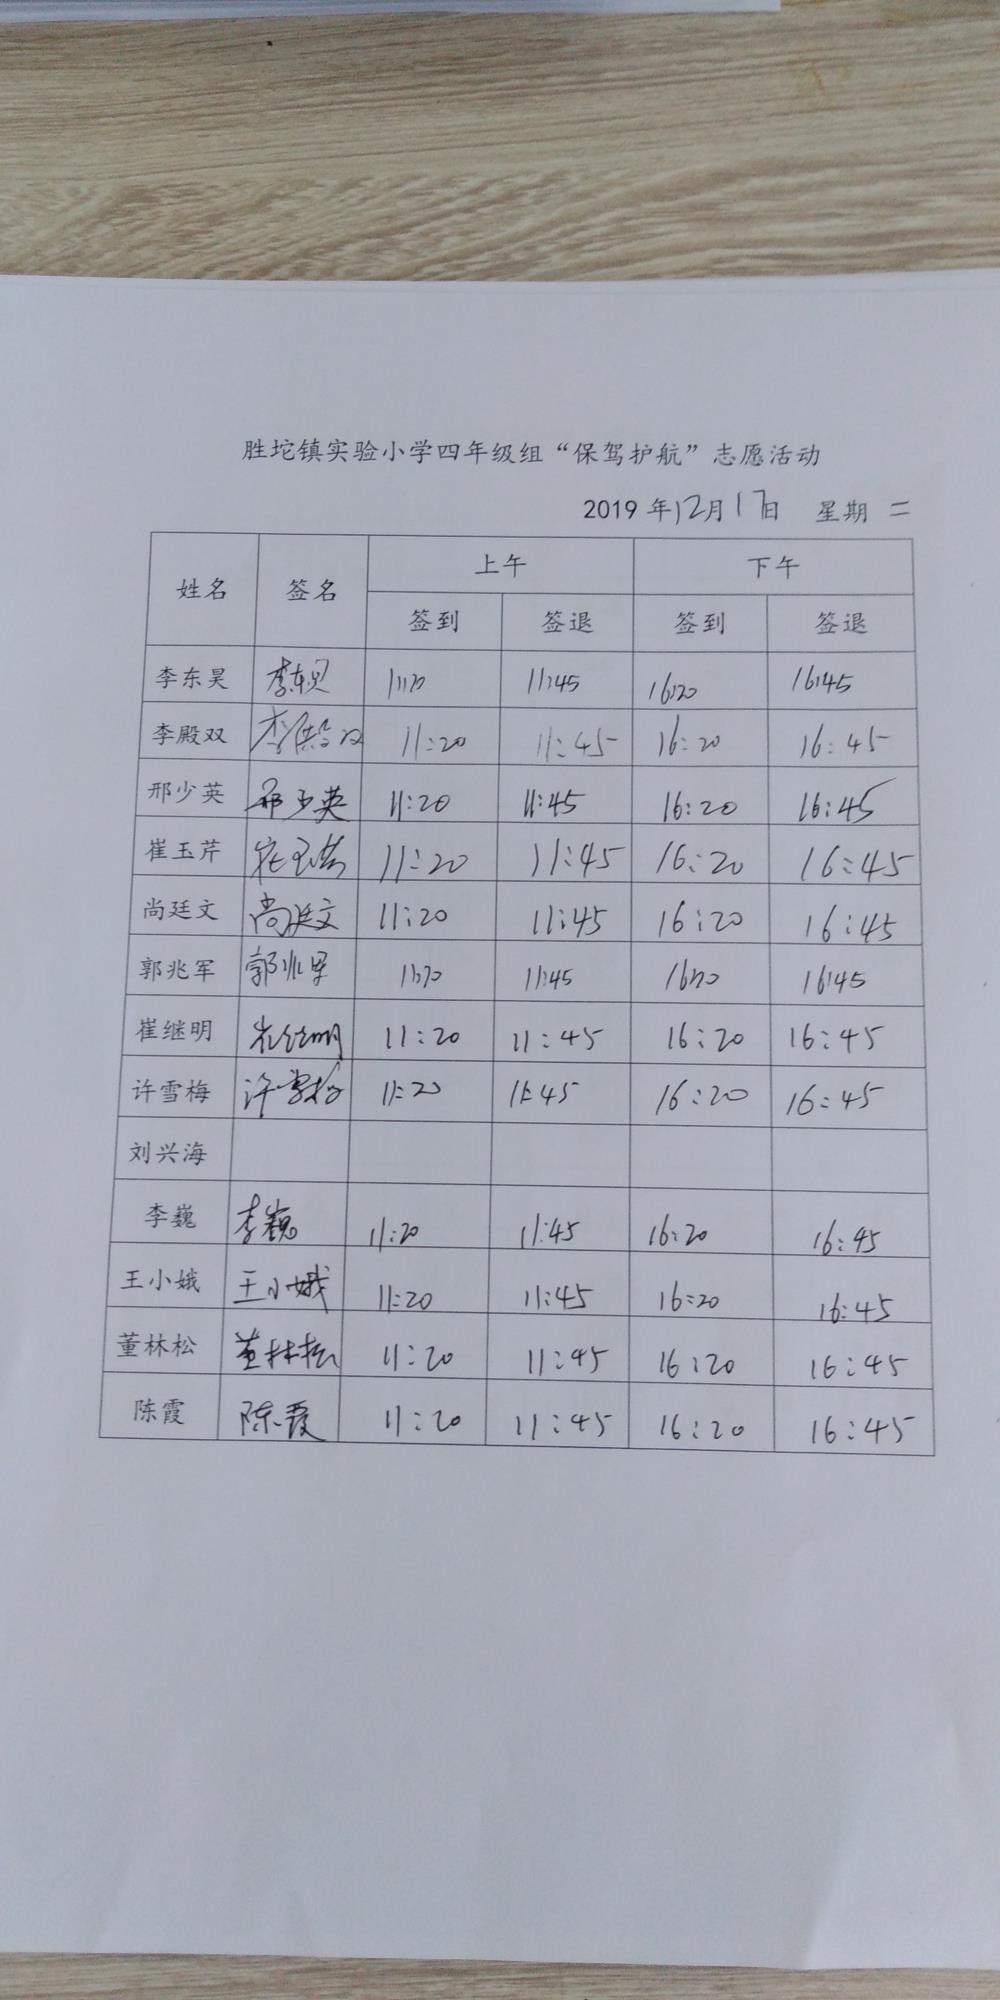 胜坨镇实验小学四年级组“保驾护航”志愿活动
2019年12月17日 星期二
姓名 签名 上午 下午
签到 签退 签到 签退
李东昊 李东昊 11:20 11:45 16:20 16:45
李殿双 李殿双 11:20 11:45 16:20 16:45
邢少英 邢少英 11:20 11:45 16:20 16:45
崔玉芹 崔玉芹 11:20 11:45 16:20 16:45
尚廷文 尚廷文 11:20 11:45 16:20 16:45
郭兆军 郭兆军 11:20 11:45 16:20 16:45
崔继明 崔继明 11:20 11:45 16:20 16:45
许雪梅 许雪梅 11:20 11:45 16:20 16:45
刘兴海
李巍 李巍 11:20 11:45 16:20 16:45
王小娥 王小娥 11:20 11:45 16:20 16:45
董林松 董林松 11:20 11:45 16:20 16:45
陈霞 陈霞 11:20 11:45 16:20 16:45